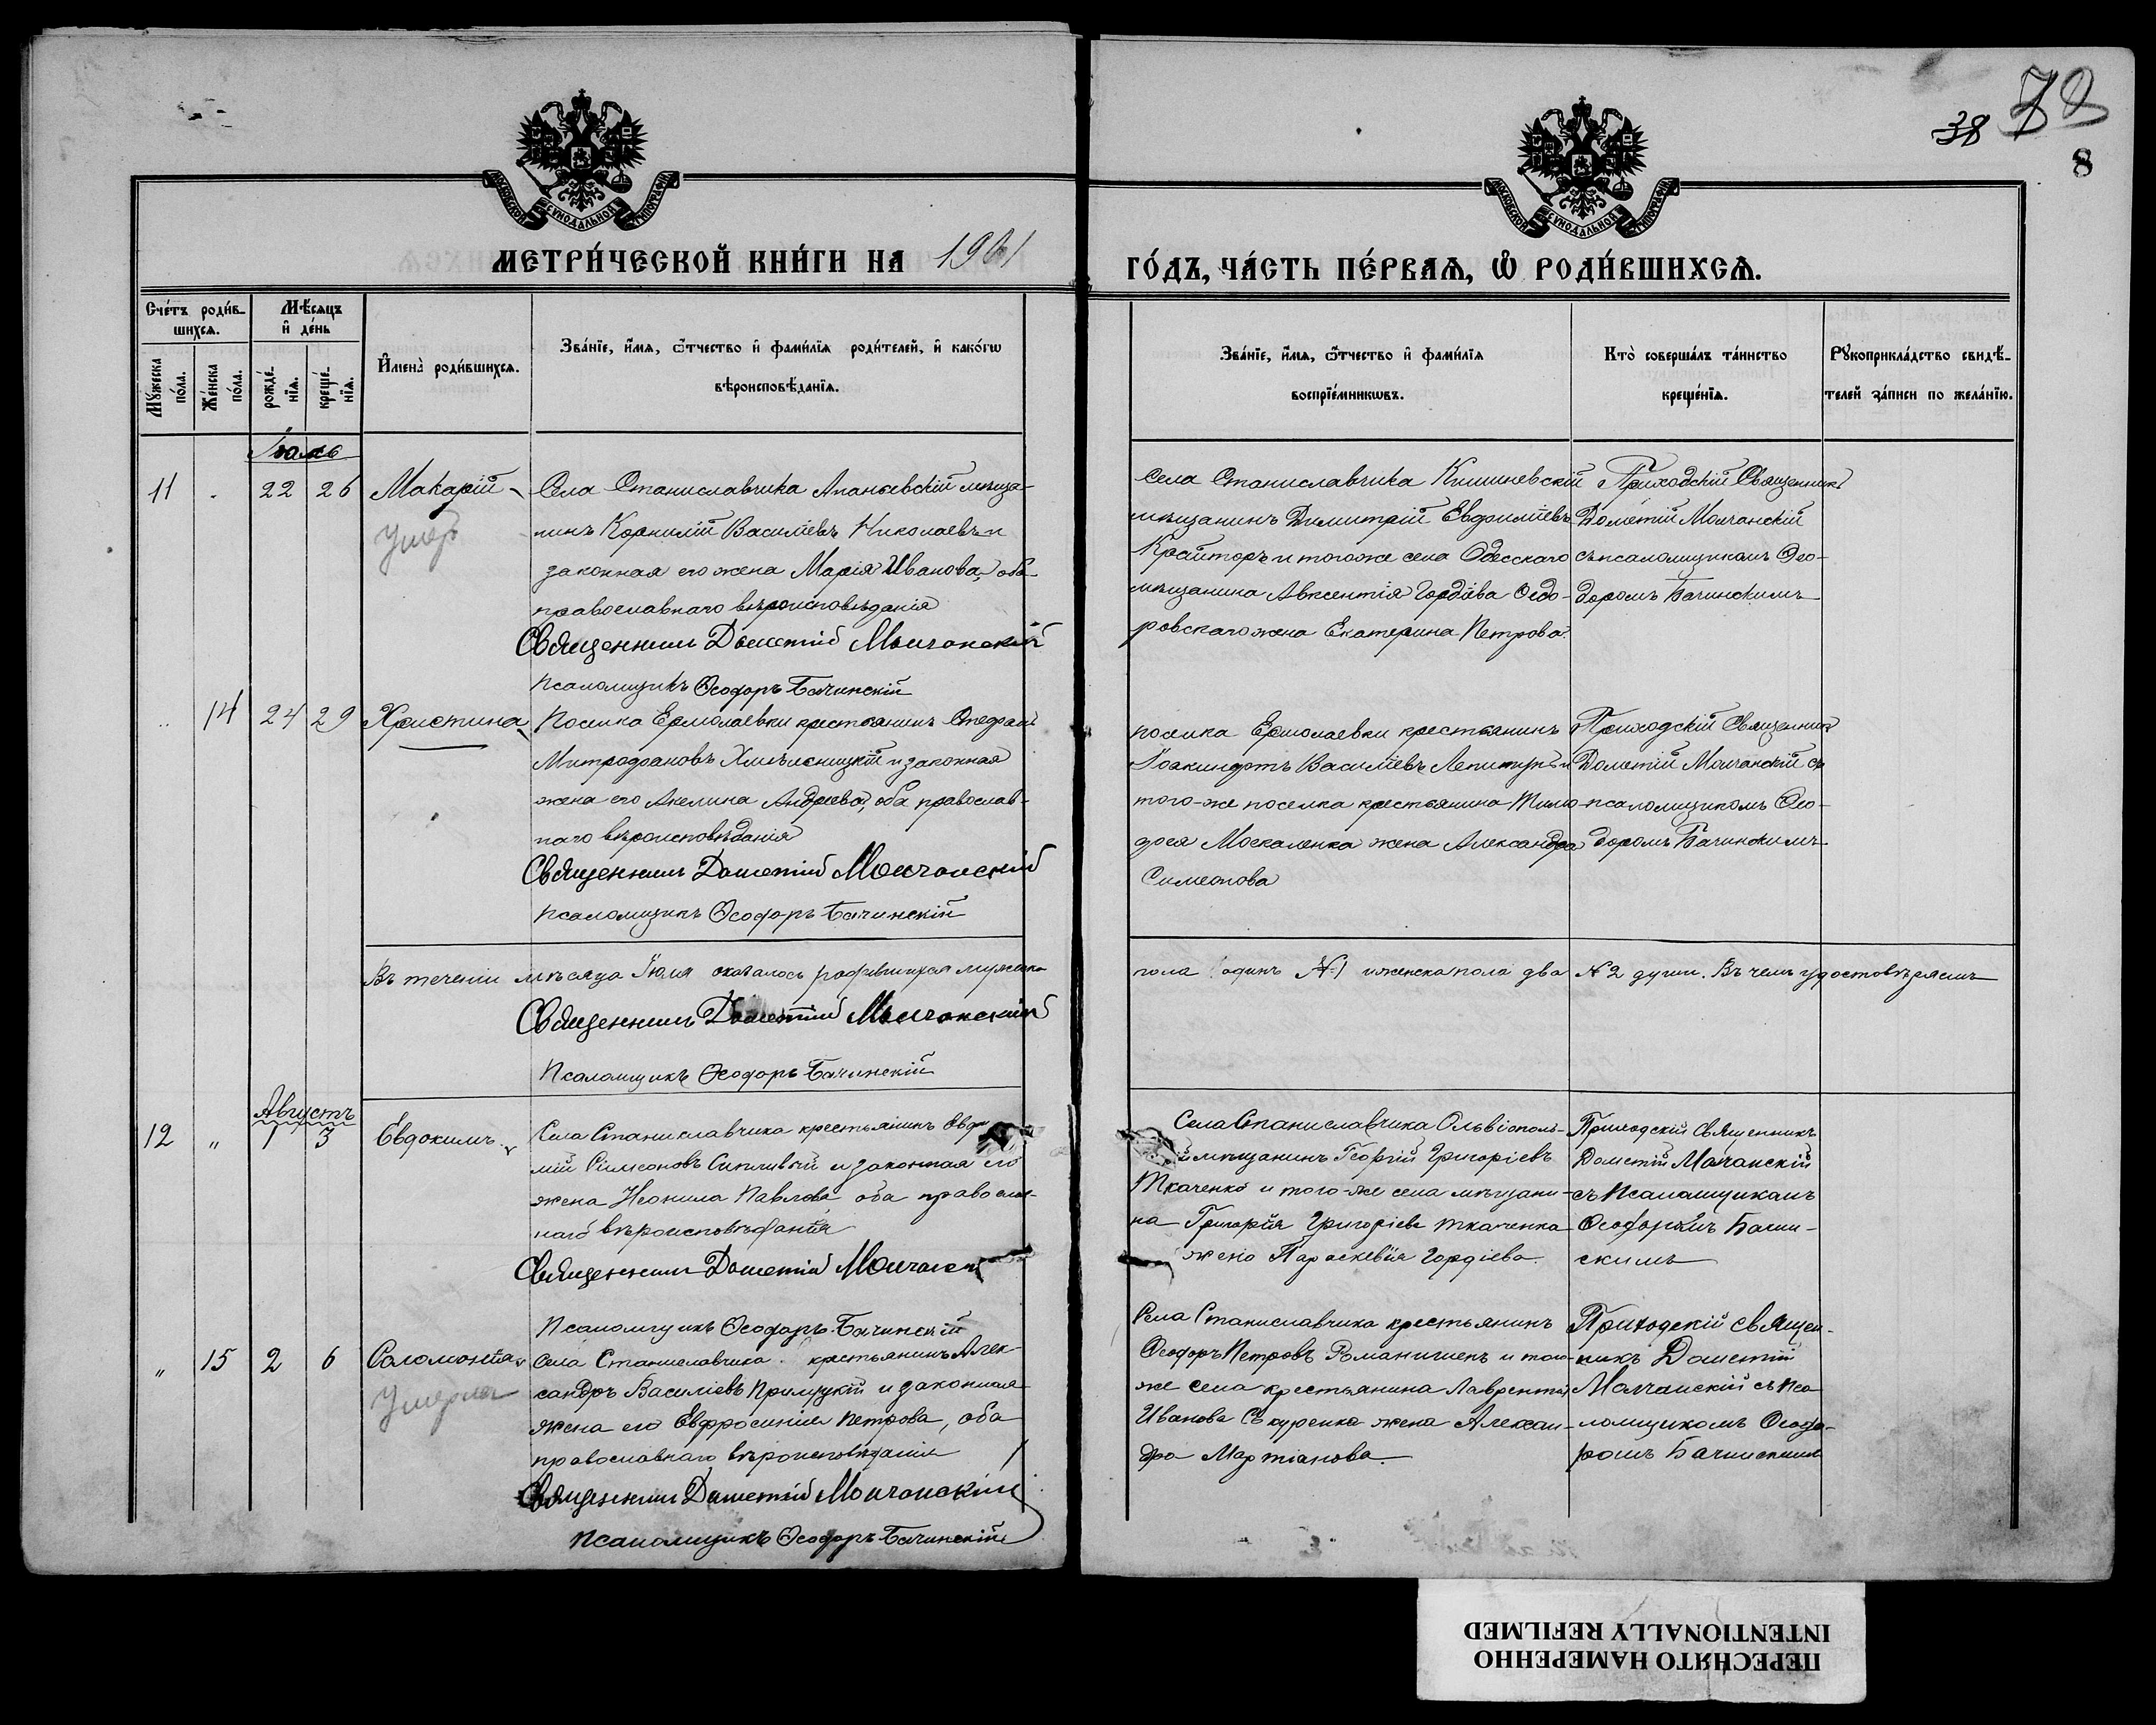 38 72
8
МОСКОВСКОЙ СѴНОДАЛЬНОЙ ТИПОГРАФІИ
МОСКОВСКОЙ СѴНОДАЛЬНОЙ ТИПОГРАФІИ
МЕТРИ́ЧЕСКОЙ КНИ́ГИ НА 1901
ГО́ДЪ, ЧА́СТЬ ПЕ́РВАѦ, Ѡ҆ РОДИ́ВШИХСѦ.
Сче́тъ роди́в-
шихсѧ.
Мѣ́сѧцъ
и҆ де́нь
Мꙋ́жеска
по́ла.
Же́нска
по́ла.
рожде́-
нїѧ.
креще́-
нїѧ.
И҆мена̀ роди́вшихсѧ.
Зва́нїе, и҆́мѧ, ѻ҆́тчество и҆ фами́лїѧ роди́телей, и҆ како́гѡ
вѣроисповѣ́данїѧ.
Зва́нїе, и҆́мѧ, ѻ҆́тчество и҆ фами́лїѧ
воспрїе́мникѡвъ.
Кто̀ соверша́лъ та́инство
креще́нїѧ.
Рꙋкоприкла́дство свидѣ́-
телей за́писи по жела́нїю.
Іюль
11 . 22 26 Макарій
Умеръ
Села Станиславчика Ананьевскій мѣща-
нинъ Корнилій Василіевъ Николаевъ и
законная его жена Марія Иванова, оба
православнаго вѣроисповѣданія
Священникъ Дометій Молчанскій
Псаломщикъ Ѳеодоръ Бачинскій
Села Станиславчика Кишиневскій
мѣщанинъ Димитрій Евфиміевъ
Крайторъ и тогоже села Одесскаго
мѣщанина Авксентія Гордіева Ѳедо-
ровскаго жена Екатерина Петрова.
Приходскій Священникъ
Дометій Молчанскій
съ псаломщикомъ Ѳео-
доромъ Бачинскимъ
„ 14 24 29 Христина
Поселка Ермолаевки крестьянинъ Стефанъ
Митрофановъ Хмѣлсницкій и законная
жена его Акелина Андреева, оба православ-
наго вѣроисповѣданія
Священникъ Дометій Молчанскій
Псаломщикъ Ѳеодоръ Бачинскій
поселка Ермолаевки крестьянинъ
Іоакинфтъ Василіевъ и
того-же поселка крестьянина Тимо-
фея Москаленка жена Александра
Симеонова
Приходскій Священникъ
Дометій Молчанскій съ
псаломщикомъ Ѳео-
доромъ Бачинскимъ
Въ теченіи мѣсяца Іюля оказалось родившихся мужска
пола одинъ №1 и женска пола два №2 души. Въ чемъ удостовѣряемъ
Священникъ Дометій Молчанскій
Псаломщикъ Ѳеодоръ Бачинскій
Августъ
12 „ 1 3 Евдокимъ
Села Станиславчика крестьянинъ Евфи
мій Симеоновъ Сипливый и законная его
жена Неонила Павлова, оба православ-
наго вѣроисповѣданія
Священникъ Дометій Молчанск
Псаломщикъ Ѳеодоръ Бачинскій
Села Станиславчика Ольвіополь-
й мѣщанинъ Георгій Григоріевъ
Ткаченко и того-же села мѣщани-
на Григорія Григоріева Ткаченка
жена Параскевія Гордіева.
Приходскій Священникъ
Дометій Молчанскій
съ Псаломщикомъ
Ѳеодоромъ Бачин-
скимъ
„ 15 2 6 Соломонія
Умерла
Села Станиславчика крестьянинъ Алек-
сандръ Василіевъ Прилуцкій и законная
жена его Евфросинія Петрова, оба
православнаго вѣроисповѣданія
Священникъ Дометій Молчанскій
Псаломщикъ Ѳеодоръ Бачинскій
Села Станиславчика крестьянинъ
Ѳеодоръ Петровъ Романишенъ и того-
же села крестьянина Лаврентія
Иванова Сѣкуренка жена Алексан-
дра Мартіанова.
Приходскій Священ-
никъ Дометій
Молчанскій съ Пса-
ломщикомъ Ѳеодо-
ромъ Бачинскимъ
ПЕРЕСНЯТО НАМЕРЕННО
INTENTIONALLY REFILMED